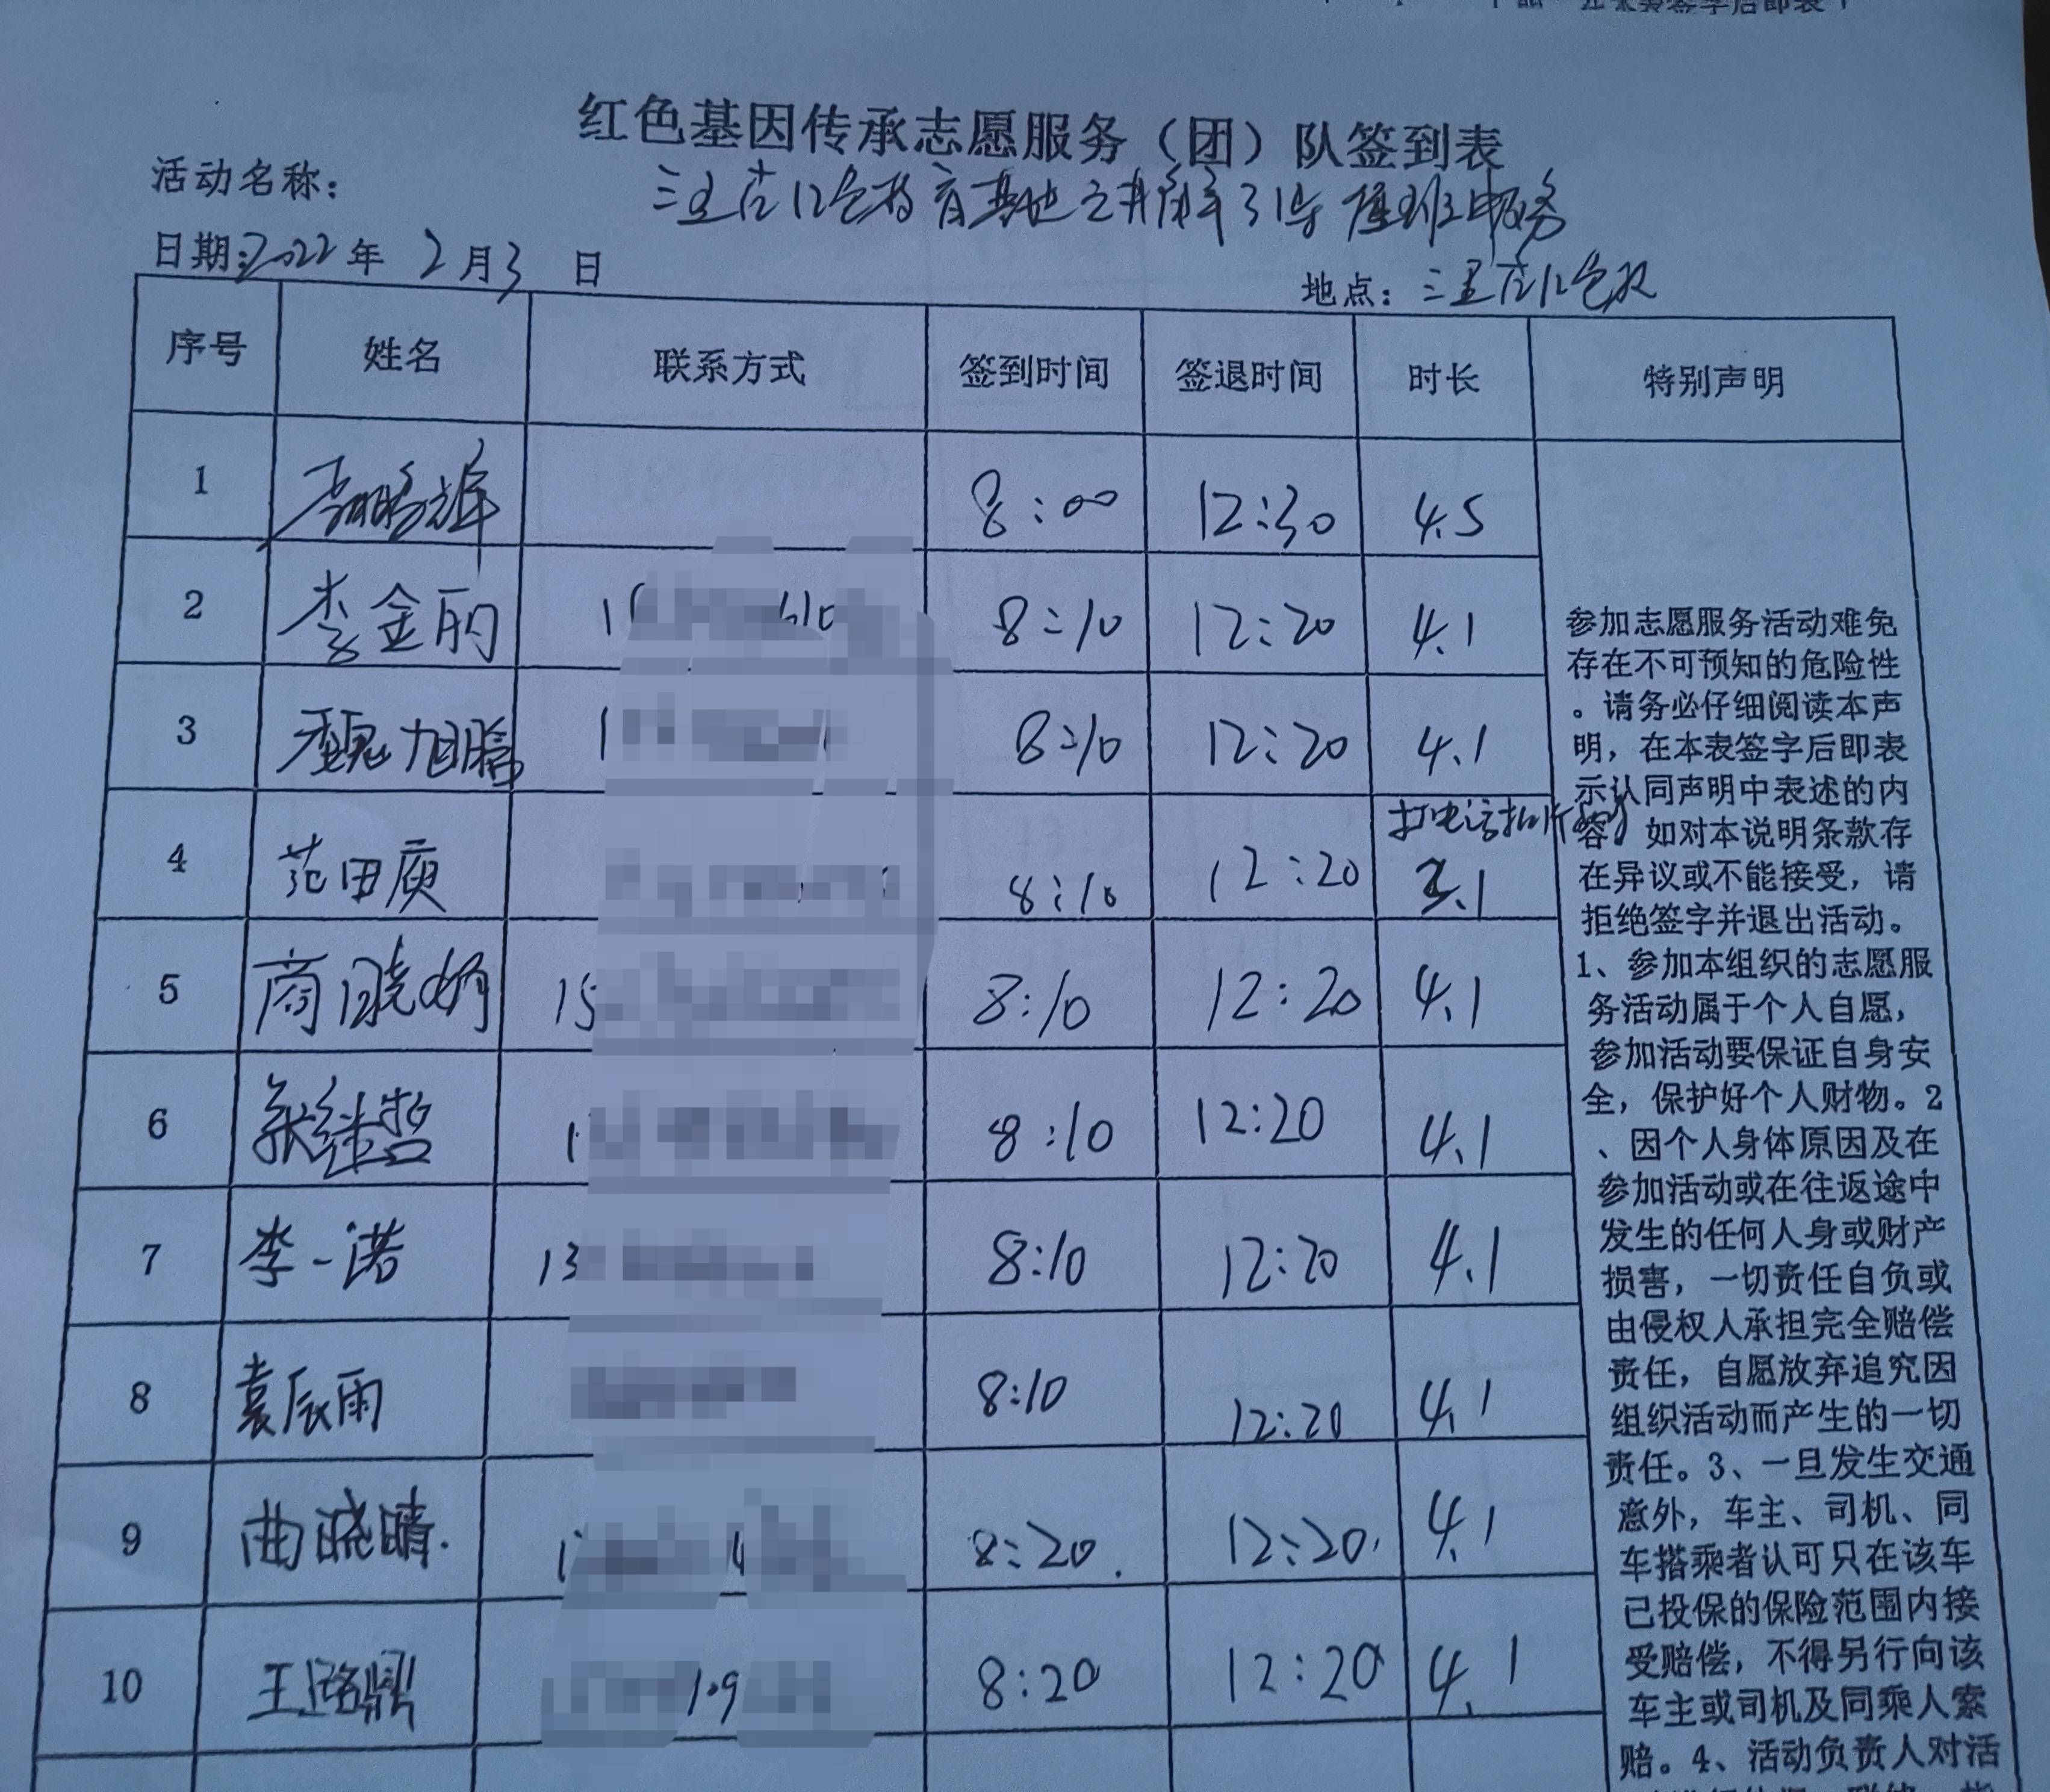 红色基因传承志愿服务（团）队签到表
活动名称：
日期：2022年 2月3 日
地点：
序号 姓名 联系方式 签到时间 签退时间 时长 特别声明
1 8:00 12:30 4.5
2 李金 8:10 12:20 4.1
3 魏旭 8:10 12:20 4.1
4 范田庾 8:10 12:20 3.1
5 商晓娇 15 8:10 12:20 4.1
6 张继哲 8:10 12:20 4.1
7 李一诺 13 8:10 12:20 4.1
8 袁辰雨 8:10 12:20 4.1
9 曲晓晴 8:20 12:20 4.1
10 王路鼎 8:20 12:20 4.1
参加志愿服务活动难免
存在不可预知的危险性
。请务必仔细阅读本声
明，在本表签字后即表
示认同声明中表述的内
容。如对本说明条款存
在异议或不能接受，请
拒绝签字并退出活动。
1、参加本组织的志愿服
务活动属于个人自愿，
参加活动要保证自身安
全，保护好个人财物。2
、因个人身体原因及在
参加活动或在往返途中
发生的任何人身或财产
损害，一切责任自负或
由侵权人承担完全赔偿
责任，自愿放弃追究因
组织活动而产生的一切
责任。3、一旦发生交通
意外，车主、司机、同
车搭乘者认可只在该车
已投保的保险范围内接
受赔偿，不得另行向该
车主或司机及同乘人索
赔。4、活动负责人对活